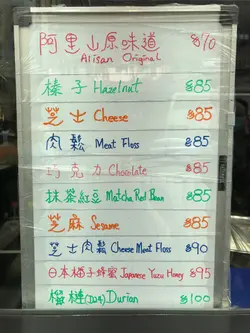 阿里山原味道 $70
Alisan Original
榛子 Hazelnut $85
芝士 Cheese $85
肉鬆 Meat Floss $85
巧克力 Chocolate $85
抹茶紅豆 Matcha Red Bean $85
芝麻 Sesame $85
芝士肉鬆 Cheese Meat Floss $90
日本柚子蜂蜜 Japanese Yuzu Honey $95
榴槤 Durian $100